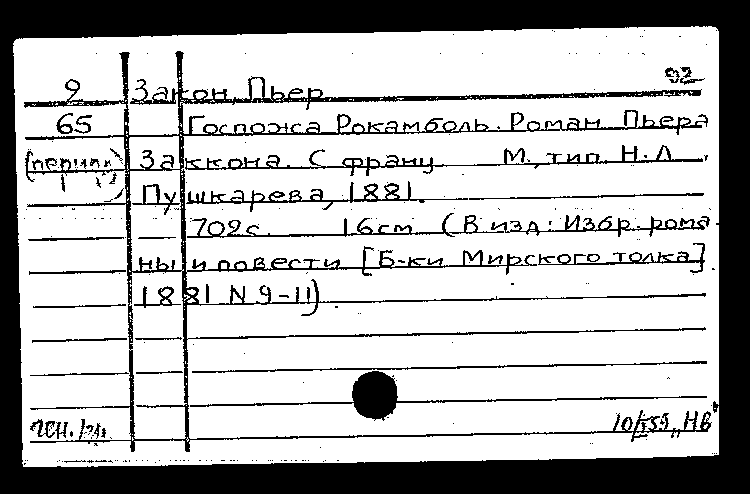 92
9 Закон, Пьер
65 Госпожа Рокамболь. Роман Пьера
(период) Заккона. С франц. М., тип. Н. Л.
Пушкарева, 1881.
702 с. 16 см (В изд: Избр. рома-
ны и повести [Б-ки Мирского толка]
1881 N 9-11).
ген.
10/ "НВ"